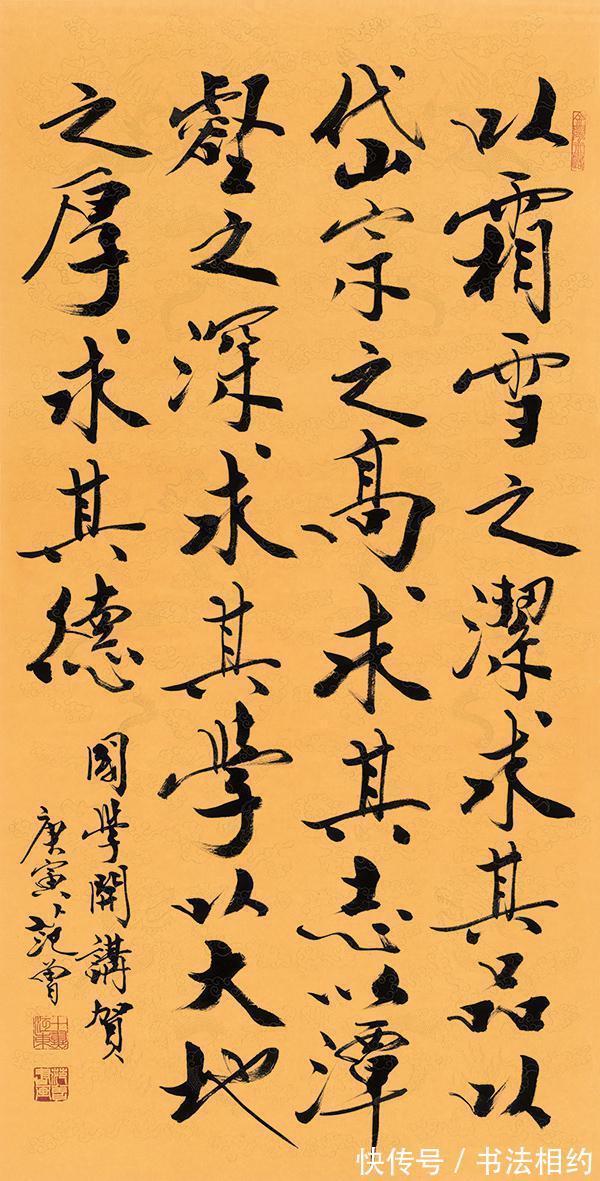 以霜雪之潔求其品以
岱宗之高求其志以潭
壑之深求其學以大地
之厚求其德
國學開講賀
庚寅 范曾
快传号 / 书法相约